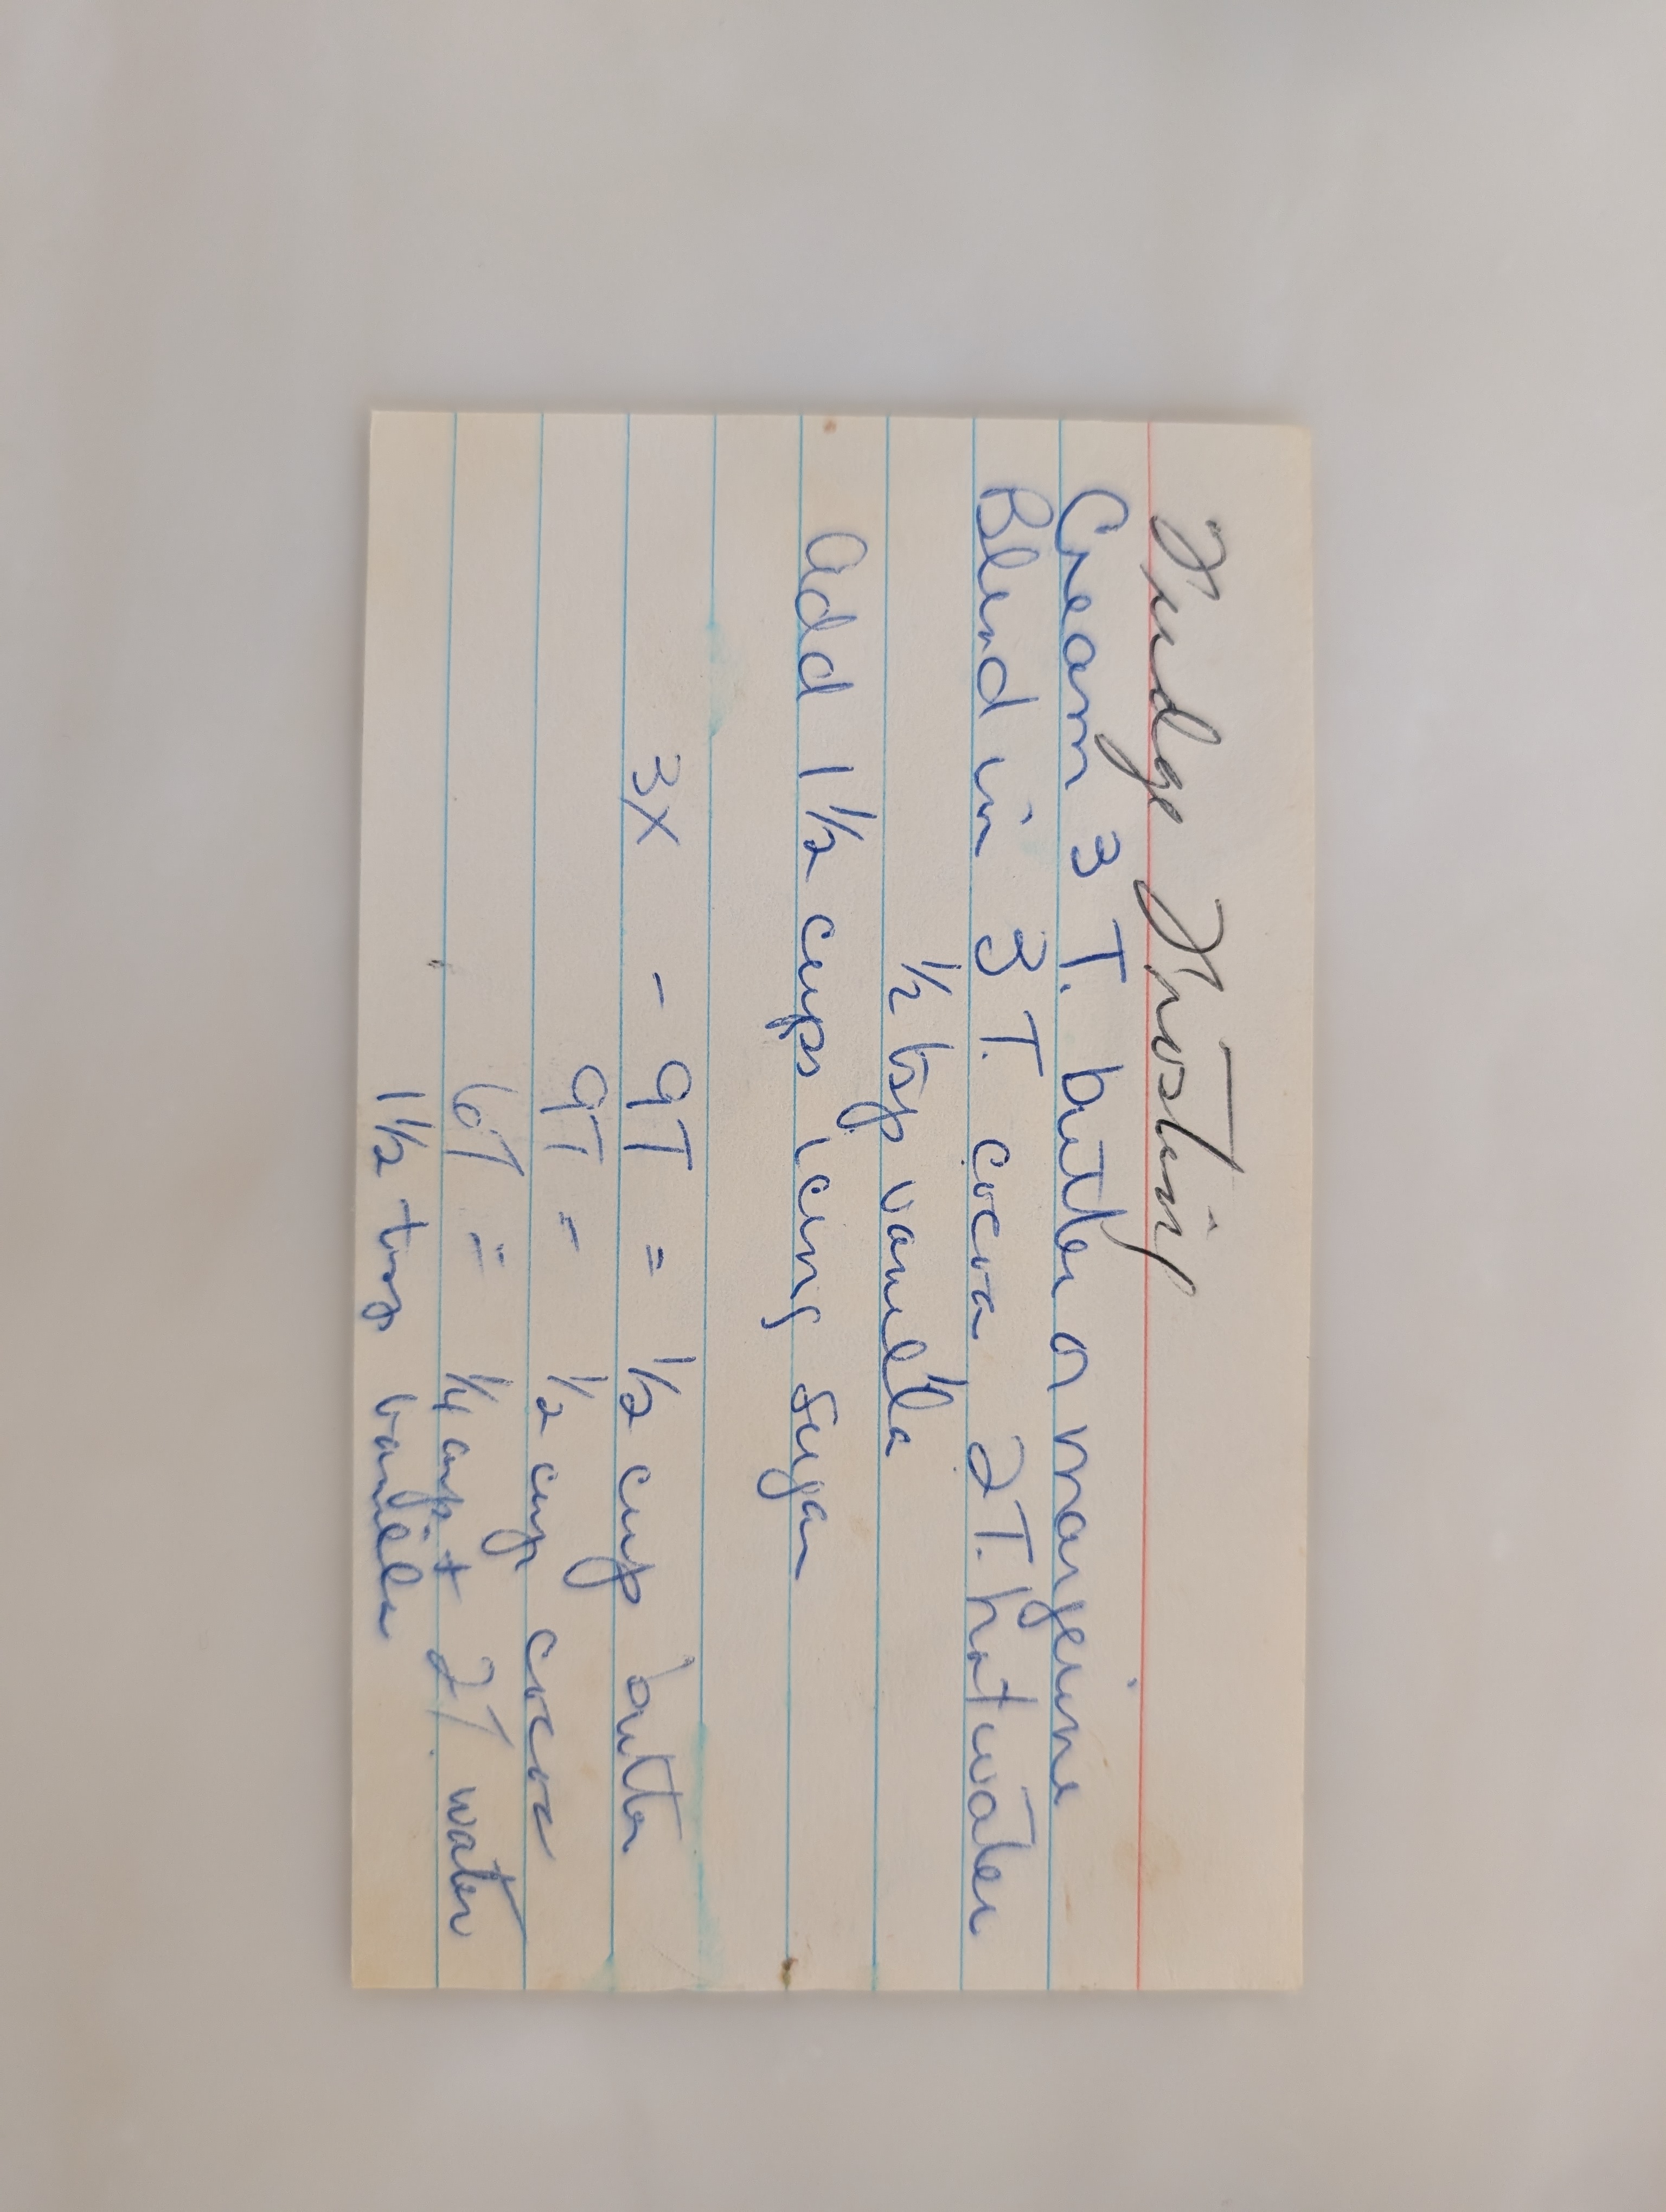 Fudge Frosting
Cream 3 T. butter or margerine
Blend in 3 T. cocoa 2T. hot water
1/2 tsp vanilla
Add 1 1/2 cups icing sugar
3X - 9T = 1/2 cup butter
9T = 1/2 cup cocoa
6T = 1/4 cup + 2T water
1 1/2 tsp vanilla